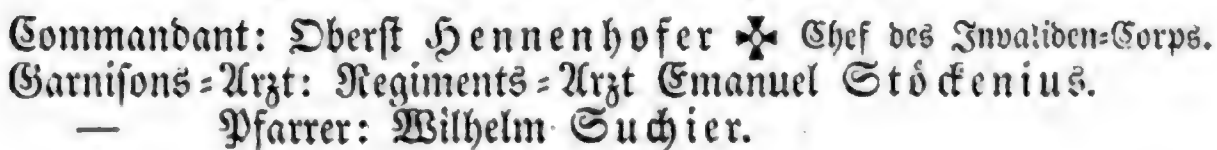 Commandant: Oberst Hennenhofer ✠ Chef des Invaliden-Corps.
Garnisons-Arzt: Regiments-Arzt Emanuel Stöckenius.
— Pfarrer: Wilhelm Suchier.